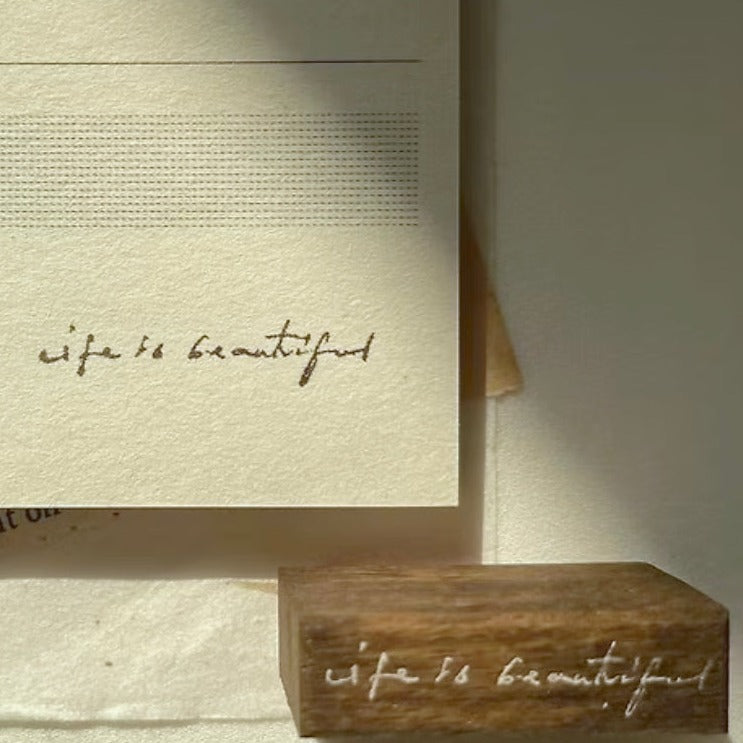 life is beautiful
life is beautiful